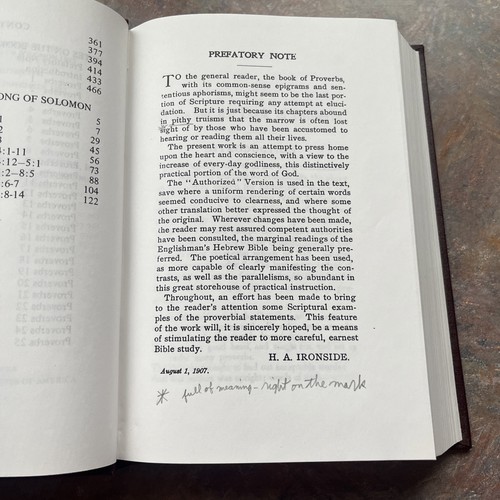 361
377
394
414
433
466
ONG OF SOLOMON
5
7
29
:1-11 45
:12–5:1 56
:2–8:5 73
:6-7 88
:8-14 104
122
PREFATORY NOTE
TO the general reader, the book of Proverbs,
with its common-sense epigrams and sen-
tentious aphorisms, might seem to be the last por-
tion of Scripture requiring any attempt at eluci-
dation. But it is just because its chapters abound
in pithy truisms that the marrow is often lost
sight of by those who have been accustomed to
hearing or reading them all their lives.
The present work is an attempt to press home
upon the heart and conscience, with a view to the
increase of every-day godliness, this distinctively
practical portion of the word of God.
The "Authorized" Version is used in the text,
save where a uniform rendering of certain words
seemed conducive to clearness, and where some
other translation better expressed the thought of
the original. Wherever changes have been made,
the reader may rest assured competent authorities
have been consulted, the marginal readings of the
Englishman's Hebrew Bible being generally pre-
ferred. The poetical arrangement has been used,
as more capable of clearly manifesting the con-
trasts, as well as the parallelisms, so abundant in
this great storehouse of practical instruction.
Throughout, an effort has been made to bring
to the reader's attention some Scriptural exam-
ples of the proverbial statements. This feature
of the work will, it is sincerely hoped, be a means
of stimulating the reader to more careful, earnest
Bible study.
H. A. IRONSIDE.
August 1, 1907.
* full of meaning - right on the mark